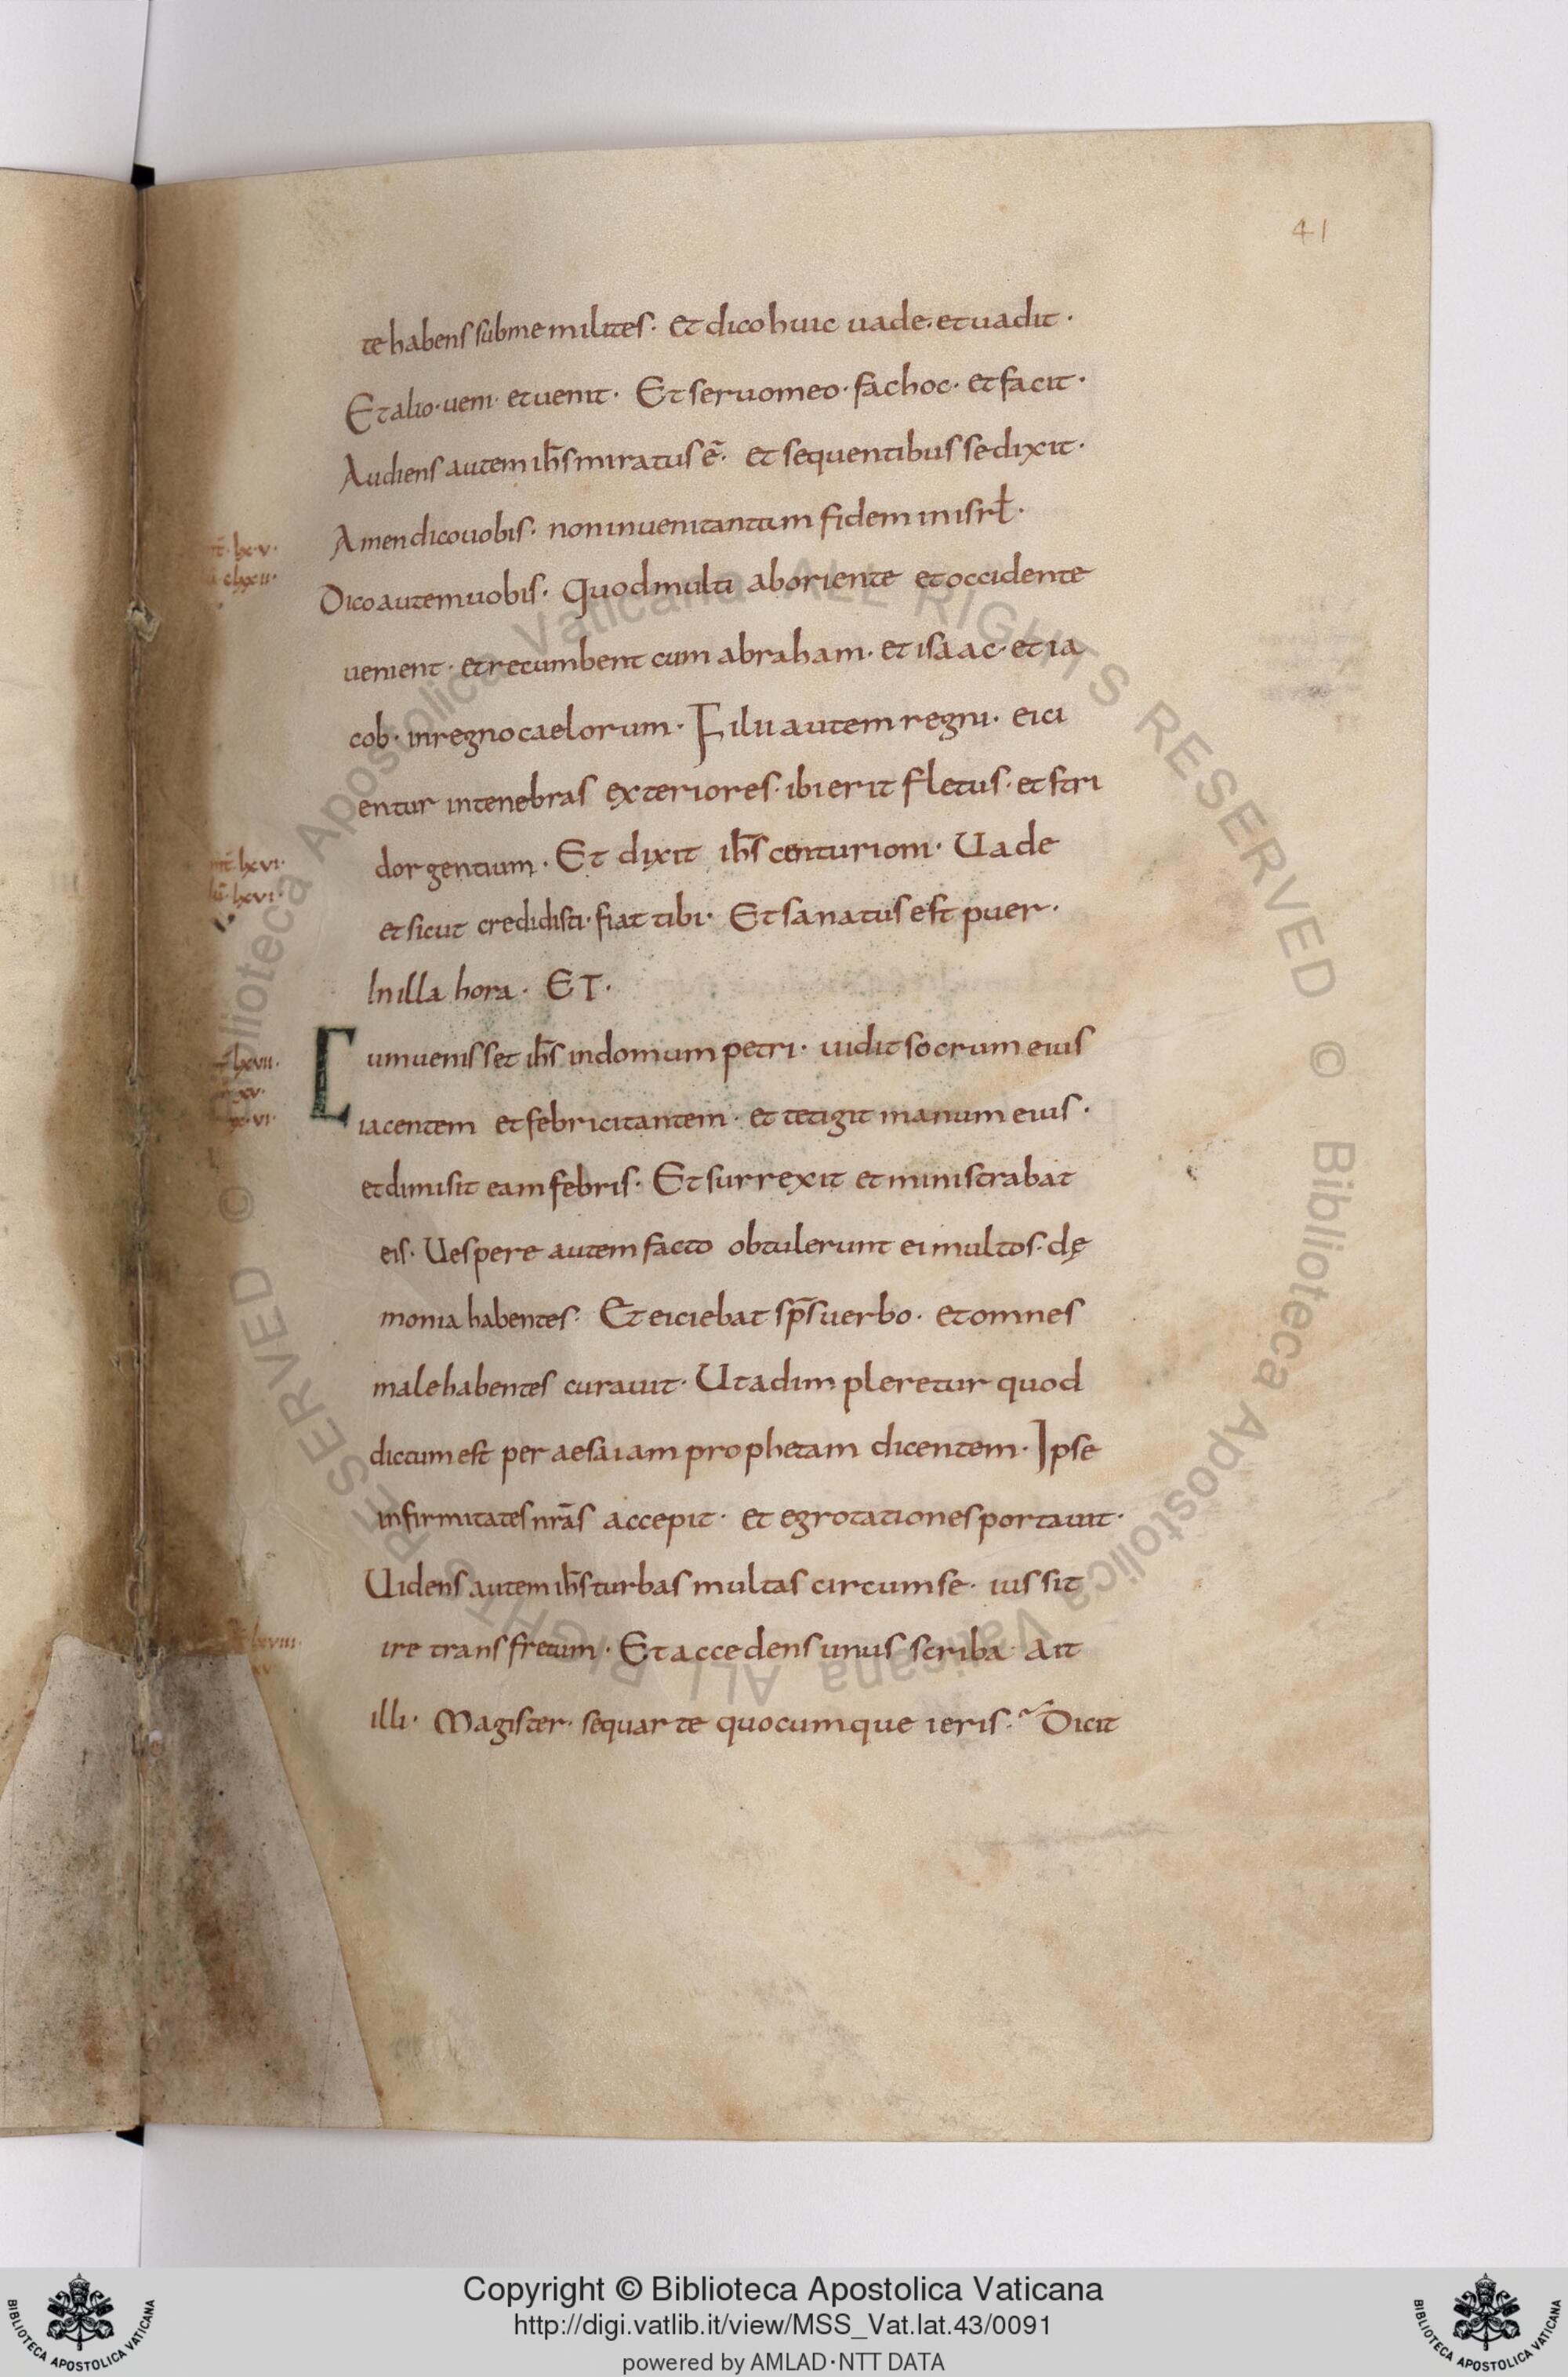 41
te habens sub me milites· Et dico huic uade· et uadit·
Et alio· ueni· et uenit· Et seruo meo· fac hoc· et facit·
Audiens autem ih̅s miratus ē· et sequentibus se dixit·
Amen dico uobis· non inueni tantam fidem in isrƚ·
Dico autem uobis· Quod multi ab oriente et occidente
uenient· et recumbent cum abraham· et isaac· et ia
cob· in regno caelorum· Filii autem regni· eici
entur in tenebras exteriores· ibi erit fletus· et stri
dor gentium· Et dixit ih̅s centurioni· Uade
et sicut credidisti· fiat tibi· Et sanatus est puer·
In illa hora· ET·
Cum uenisset ih̅s in domum petri· uidit socrum eius
iacentem et febricitantem· et tetigit manum eius·
et dimisit eam febris· Et surrexit et ministrabat
eis· Uespere autem facto obtulerunt ei multos· dę
monia habentes· Et eiciebat sp̅s uerbo· et omnes
male habentes curauit· Ut adimpleretur quod
dictum est per aesaiam prophetam dicentem· Ipse
infirmitates nr̅as accepit· et egrotationes portauit·
Uidens autem ih̅s turbas multas circum se· iussit
ire trans fretum· Et accedens unus scriba· ait
illi· Magister· sequar te quocumque ieris· Dicit
Copyright © Biblioteca Apostolica Vaticana
http://digi.vatlib.it/view/MSS_Vat.lat.43/0091
powered by AMLAD·NTT DATA
BIBLIOTECA APOSTOLICA VATICANA
BIBLIOTECA APOSTOLICA VATICANA
© Biblioteca Apostolica Vaticana ALL RIGHTS RESERVED © Biblioteca Apostolica Vaticana ALL RIGHTS RESERVED